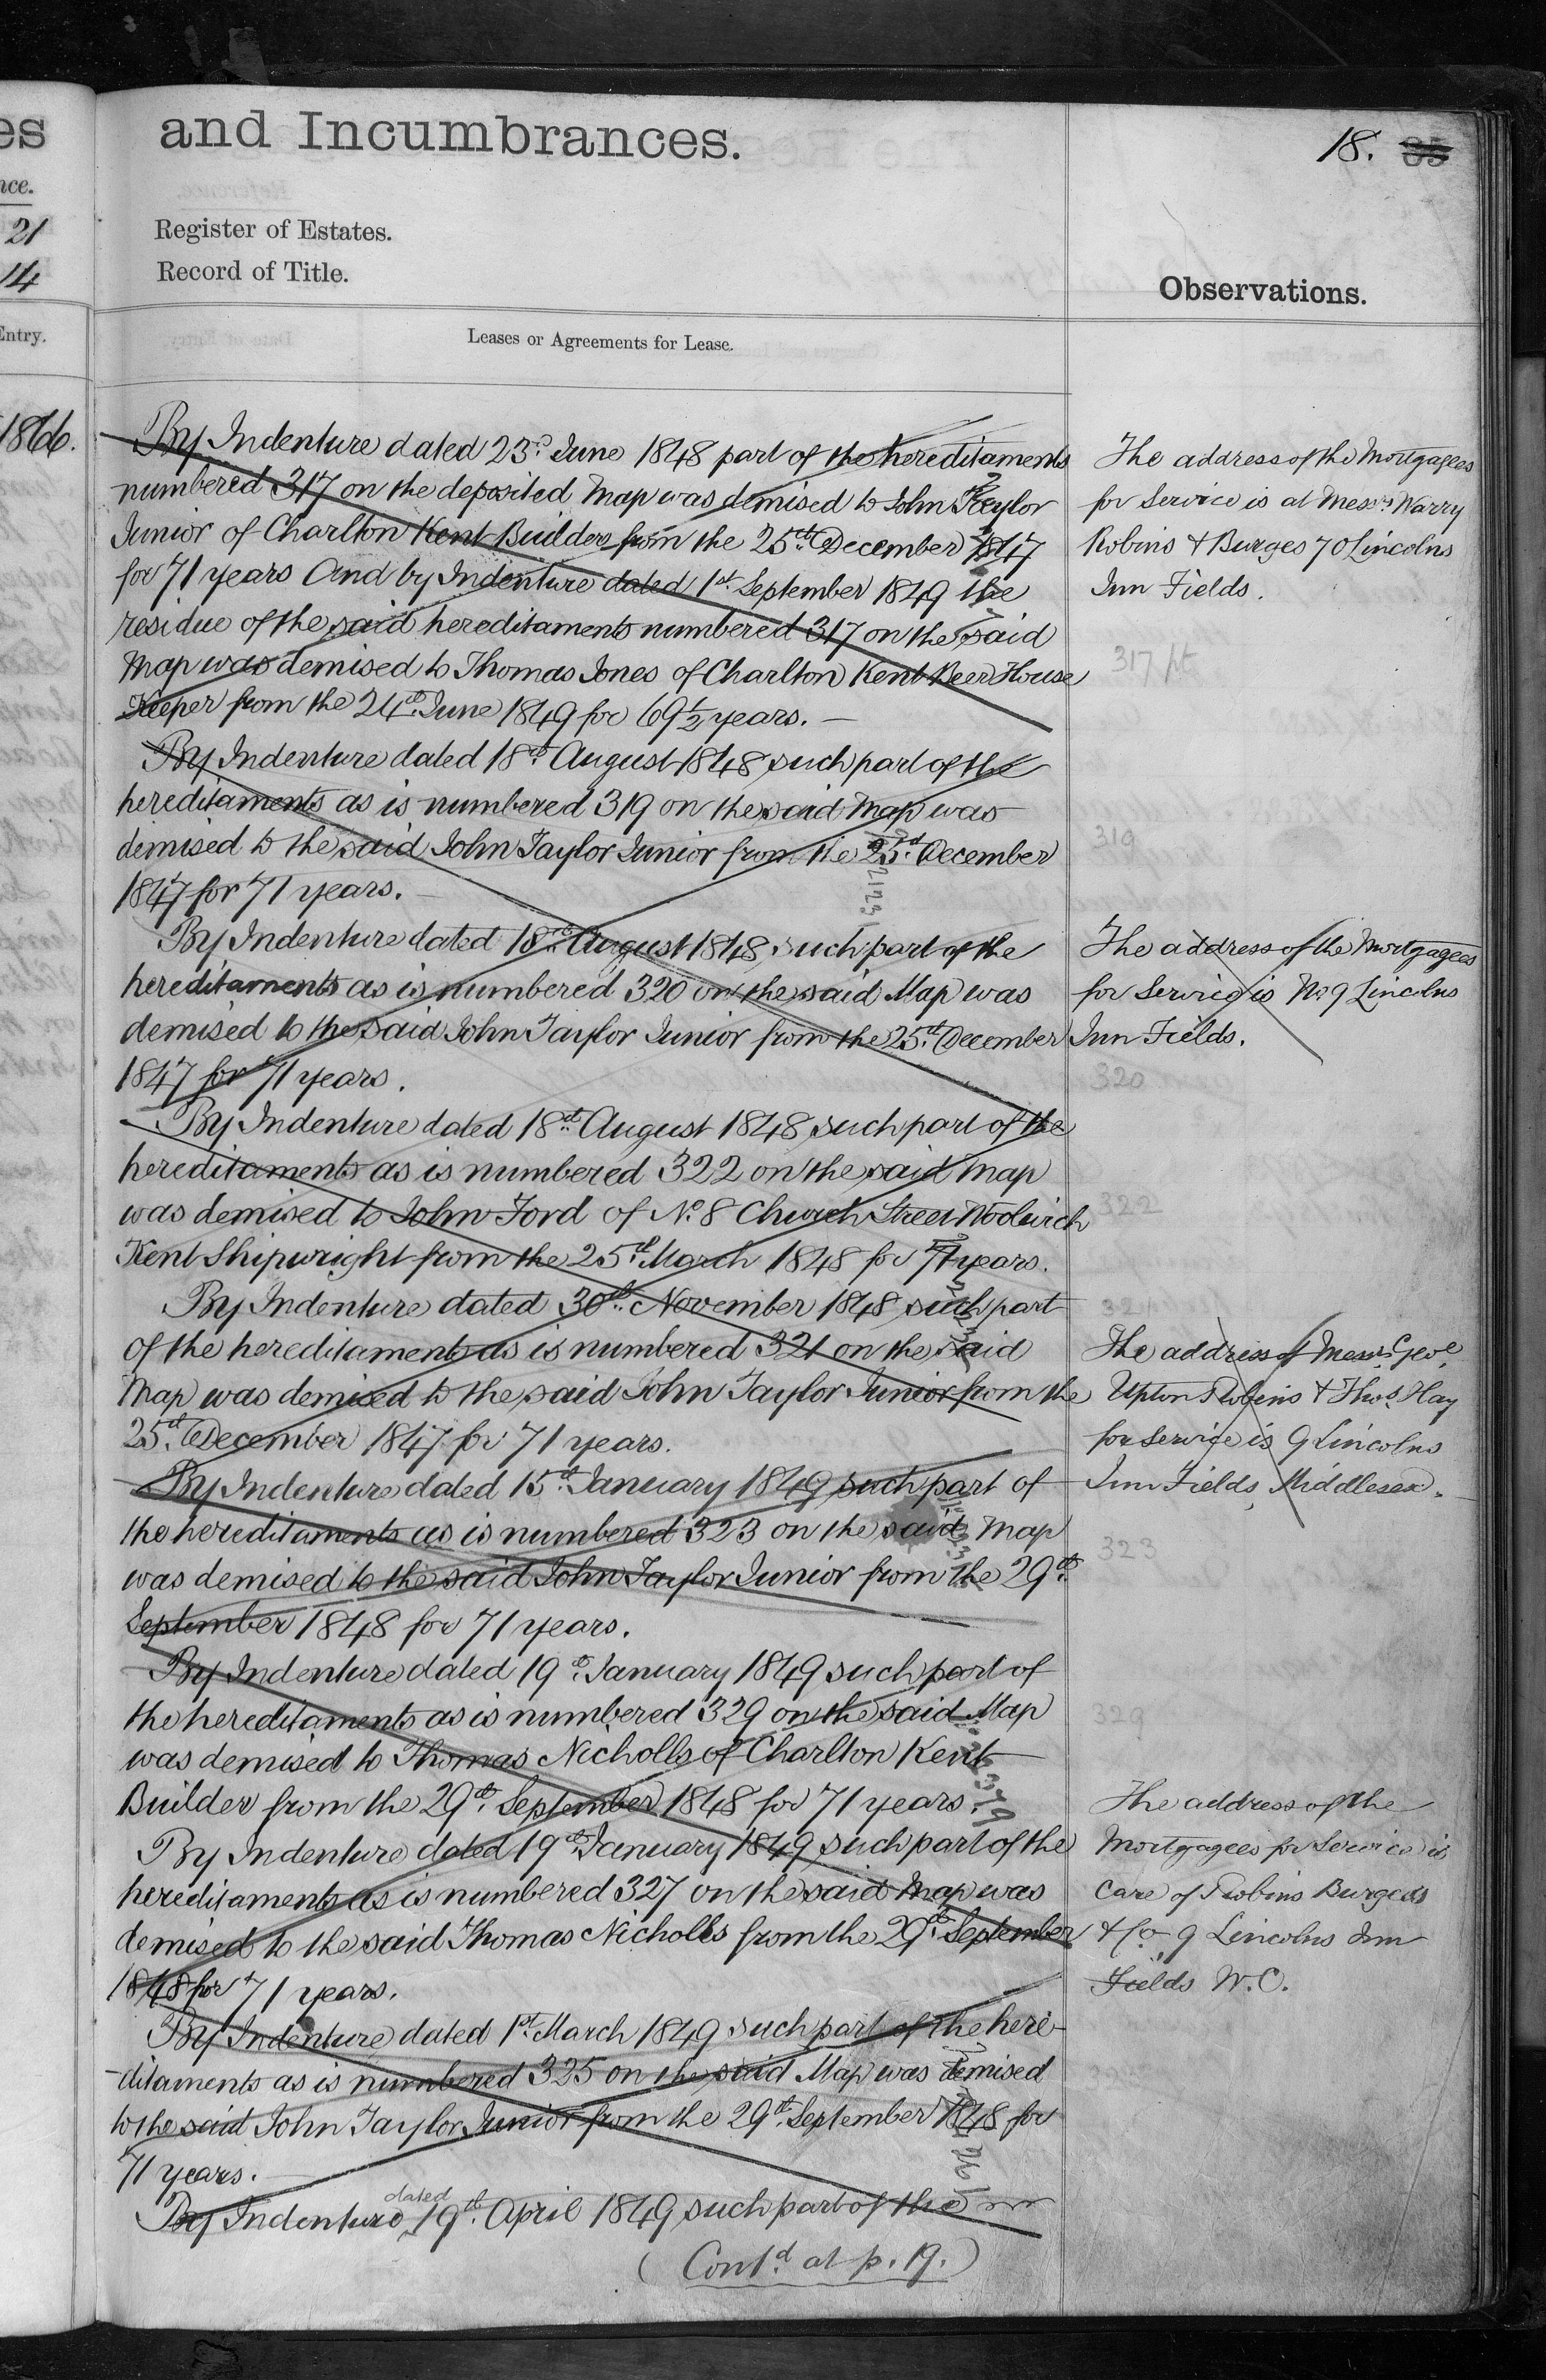 es
and Incumbrances.
18. 35
nce.
21
14
Register of Estates.
Record of Title.
Observations.
Entry.
Leases or Agreements for Lease.
1866.
By Indenture dated 23d June 1848 part of the hereditaments
numbered 317 on the deposited Map was demised to John Taylor
Junior of Charlton Kent Builder from the 25th December 1847
for 71 years And by Indenture dated 1st September 1849 the
residue of the said hereditaments numbered 317 on the said
Map was demised to Thomas Jones of Charlton Kent Beer House
Keeper from the 24th June 1849 for 69½ years. —
By Indenture dated 18th August 1848 such part of the
hereditaments as is numbered 319 on the said Map was
demised to the said John Taylor Junior from the 25th December
1847 for 71 years. —
By Indenture dated 18th August 1848 such part of the
hereditaments as is numbered 320 on the said Map was
demised to the said John Taylor Junior from the 25th December
1847 for 71 years.
By Indenture dated 18th August 1848 such part of the
hereditaments as is numbered 322 on the said Map
was demised to John Ford of No. 8 Church Street Woolwich
Kent Shipwright from the 25th March 1848 for 71 years.
By Indenture dated 30th November 1848 such part
of the hereditaments as is numbered 321 on the said
Map was demised to the said John Taylor Junior from the
25th December 1847 for 71 years.
By Indenture dated 15th January 1849 such part of
the hereditaments as is numbered 323 on the said Map
was demised to the said John Taylor Junior from the 29th
September 1848 for 71 years.
By Indenture dated 19th January 1849 such part of
the hereditaments as is numbered 329 on the said Map
was demised to Thomas Nicholls of Charlton Kent
Builder from the 29th September 1848 for 71 years.
By Indenture dated 19th January 1849 such part of the
hereditaments as is numbered 327 on the said Map was
demised to the said Thomas Nicholls from the 29th September
1848 for 71 years.
By Indenture dated 1st March 1849 such part of the here-
-ditaments as is numbered 325 on the said Map was demised
to the said John Taylor Junior from the 29th September 1848 for
71 years. —
By Indenture dated 19th April 1849 such part of the
(Contd at p. 19.)
The address of the Mortgagees
for Service is at Messrs Warry
Robins & Burges 70 Lincolns
Inn Fields.
317 pt
319
The address of the Mortgagees
for Service is No 9 Lincolns
Inn Fields.
320
322
321
The address of Messrs Geoe
Upton Robins & Thos Hay
for Service is 9 Lincolns
Inn Fields Middlesex.
323
329
The address of the
Mortgagees for Service is
Care of Robins Burges
& Co 9 Lincolns Inn
Fields W.C.